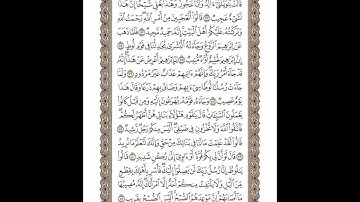 قَالَتْ يَٰوَيْلَتَىٰٓ ءَأَلِدُ وَأَنَا۠ عَجُوزٌ وَهَٰذَا بَعْلِى شَيْخًا إِنَّ هَٰذَا
لَشَىْءٌ عَجِيبٌ قَالُوٓا۟ أَتَعْجَبِينَ مِنْ أَمْرِ ٱللَّهِ رَحْمَتُ ٱللَّهِ
وَبَرَكَٰتُهُۥ عَلَيْكُمْ أَهْلَ ٱلْبَيْتِ إِنَّهُۥ حَمِيدٌ مَّجِيدٌ فَلَمَّا ذَهَبَ
عَنْ إِبْرَٰهِيمَ ٱلرَّوْعُ وَجَآءَتْهُ ٱلْبُشْرَىٰ يُجَٰدِلُنَا فِى قَوْمِ لُوطٍ
إِنَّ إِبْرَٰهِيمَ لَحَلِيمٌ أَوَّٰهٌ مُّنِيبٌ يَٰٓإِبْرَٰهِيمُ أَعْرِضْ عَنْ هَٰذَآ إِنَّهُۥ
قَدْ جَآءَ أَمْرُ رَبِّكَ وَإِنَّهُمْ ءَاتِيهِمْ عَذَابٌ غَيْرُ مَرْدُودٍ وَلَمَّا
جَآءَتْ رُسُلُنَا لُوطًا سِىٓءَ بِهِمْ وَضَاقَ بِهِمْ ذَرْعًا وَقَالَ هَٰذَا
يَوْمٌ عَصِيبٌ وَجَآءَهُۥ قَوْمُهُۥ يُهْرَعُونَ إِلَيْهِ وَمِن قَبْلُ كَانُوا۟
يَعْمَلُونَ ٱلسَّيِّـَٔاتِ قَالَ يَٰقَوْمِ هَٰٓؤُلَآءِ بَنَاتِى هُنَّ أَطْهَرُ لَكُمْ
فَٱتَّقُوا۟ ٱللَّهَ وَلَا تُخْزُونِ فِى ضَيْفِىٓ أَلَيْسَ مِنكُمْ رَجُلٌ رَّشِيدٌ
قَالُوا۟ لَقَدْ عَلِمْتَ مَا لَنَا فِى بَنَاتِكَ مِنْ حَقٍّ وَإِنَّكَ لَتَعْلَمُ مَا نُرِيدُ
قَالَ لَوْ أَنَّ لِى بِكُمْ قُوَّةً أَوْ ءَاوِىٓ إِلَىٰ رُكْنٍ شَدِيدٍ قَالُوا۟
يَٰلُوطُ إِنَّا رُسُلُ رَبِّكَ لَن يَصِلُوٓا۟ إِلَيْكَ فَأَسْرِ بِأَهْلِكَ بِقِطْعٍ
مِّنَ ٱلَّيْلِ وَلَا يَلْتَفِتْ مِنكُمْ أَحَدٌ إِلَّا ٱمْرَأَتَكَ إِنَّهُۥ مُصِيبُهَا
مَآ أَصَابَهُمْ إِنَّ مَوْعِدَهُمُ ٱلصُّبْحُ أَلَيْسَ ٱلصُّبْحُ بِقَرِيبٍ